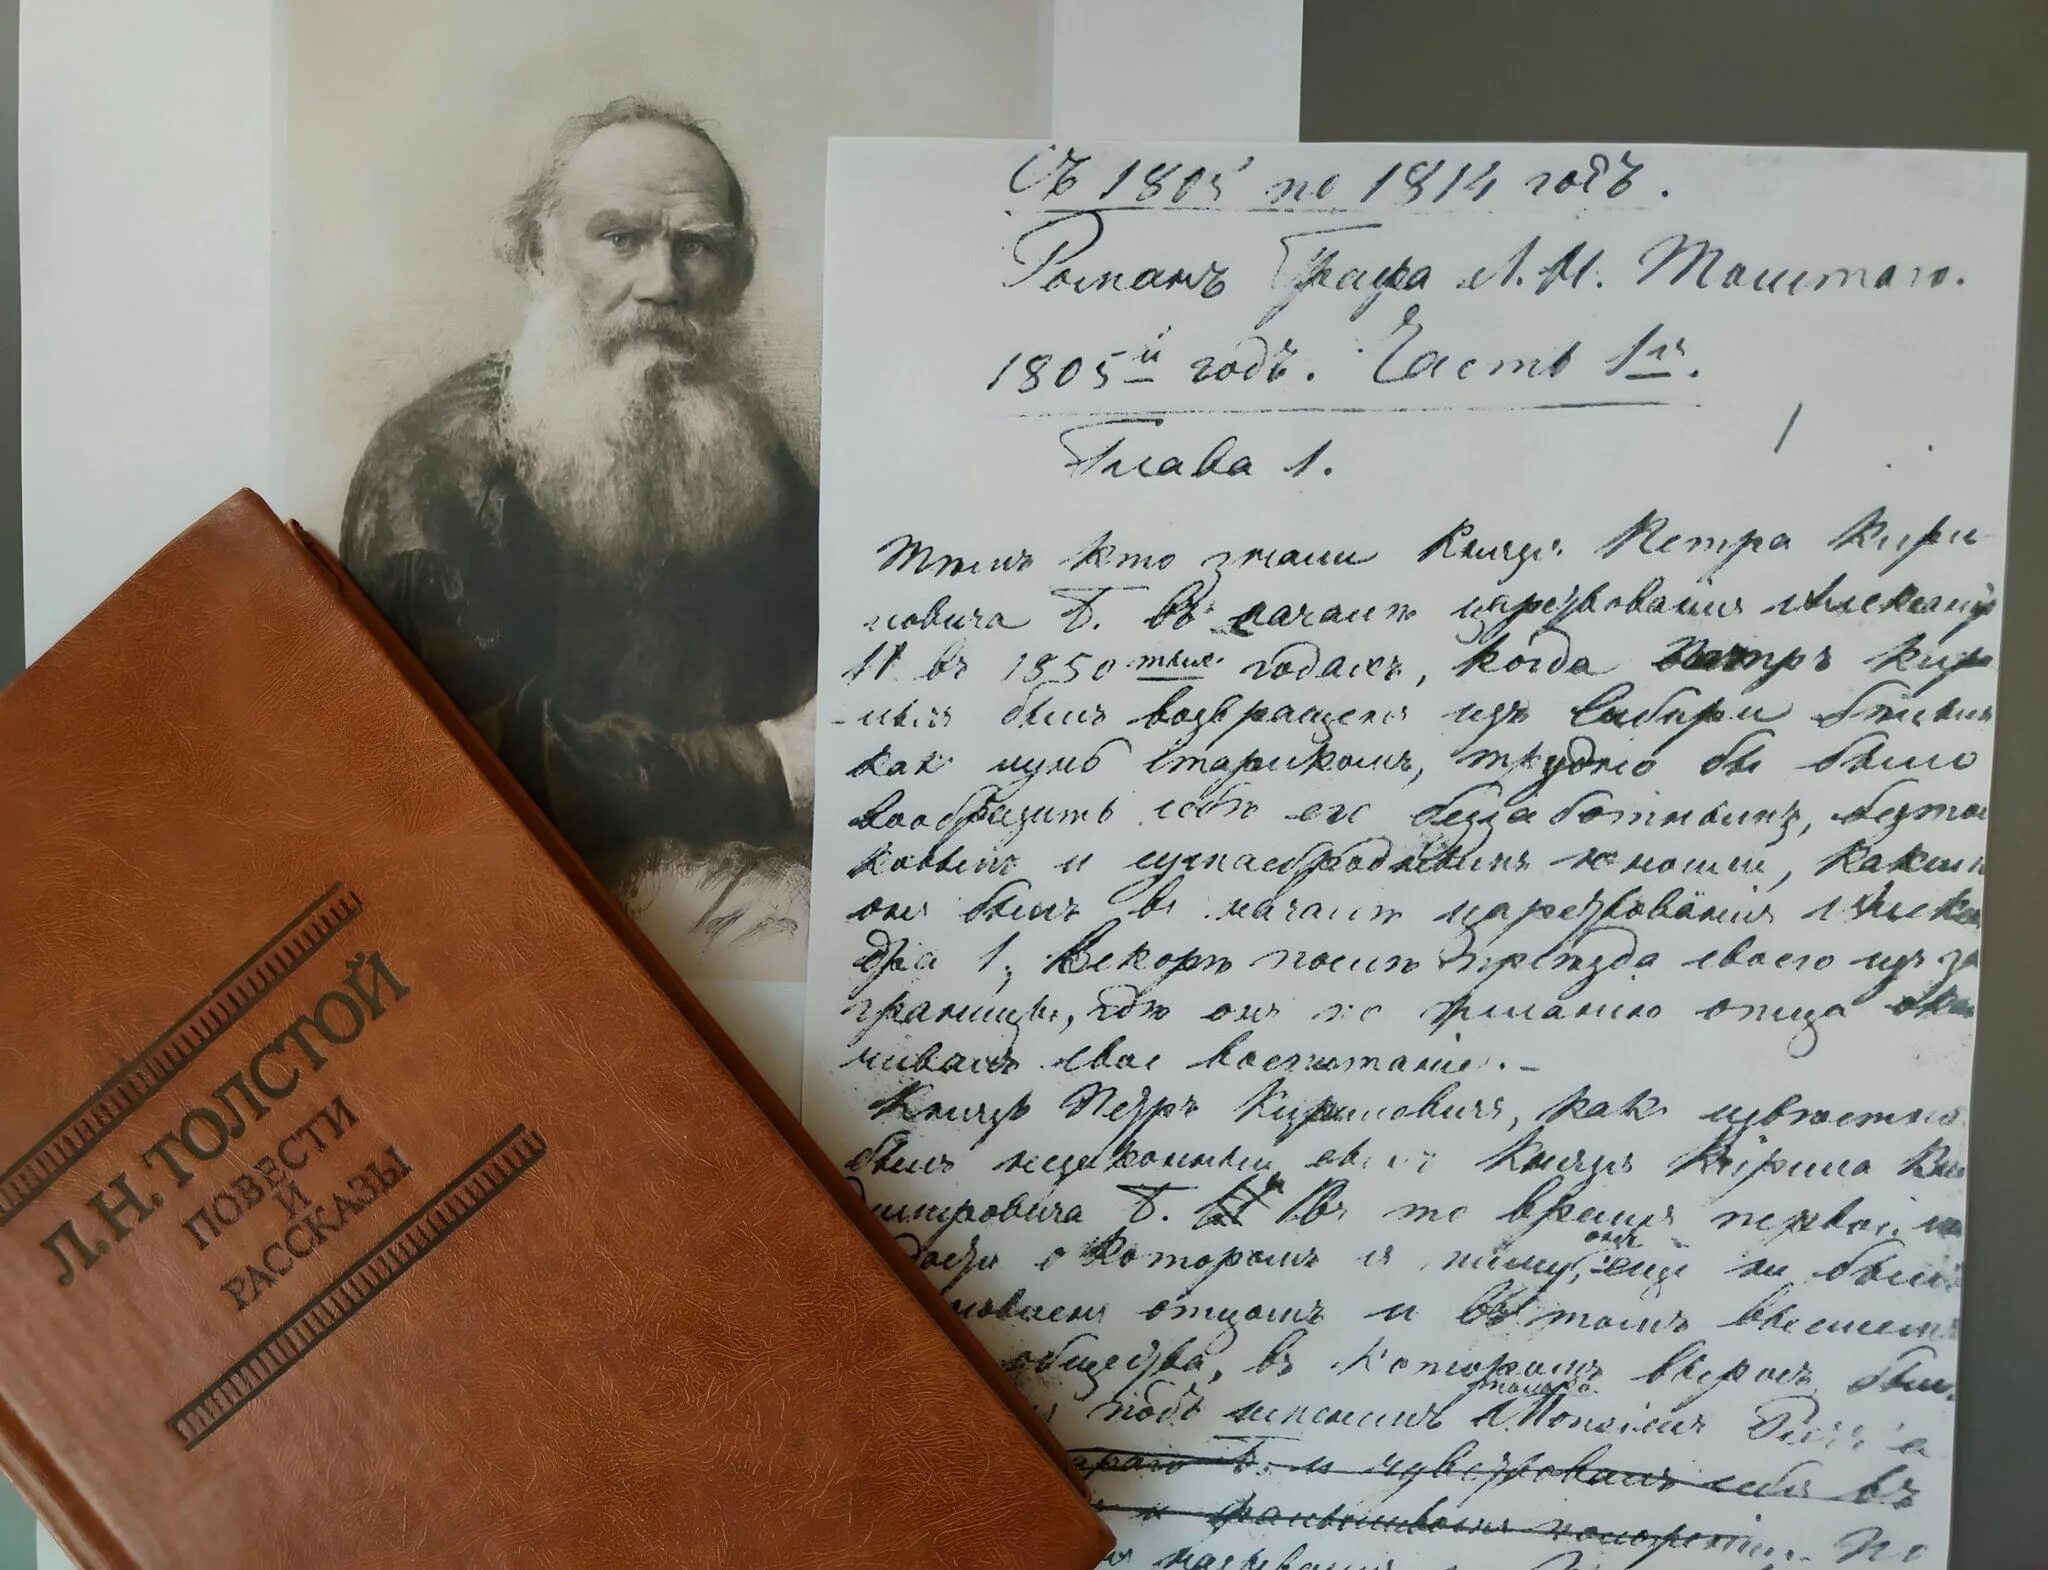 Л.Н.ТОЛСТОЙ
ПОВЕСТИ
И
РАССКАЗЫ
Съ 1805 по 1814 годъ.
Романъ Графа Л. Н. Толстого.
1805й годъ. Часть 1я.
Глава 1.
1
Тѣмъ кто знали Князя Петра Кири
ловича Б. въ началѣ царствованія Александра
II въ 1850тыхъ годахъ, когда Петръ Кири
лычъ былъ возвращенъ изъ Сибири бѣлымъ
какъ лунь старикомъ, трудно бы было
вообразить себѣ его беззаботнымъ, безтол
ковымъ и сумасброднымъ юношей, какимъ
онъ былъ въ началѣ царствованія Алекса
дра 1, вскорѣ послѣ пріѣзда своего изъ за
границы, гдѣ онъ по желанію отца окан
чивалъ свое воспитаніе. –
Князь Петръ Кириловичъ, какъ извѣстно
былъ незаконный сынъ Князя Кирила Вла
димировича Б. Въ то время
о которомъ я пишу, онъ еще не былъ
отцомъ и въ томъ высшемъ
общества, въ которомъ
только
Monsieur Pierre а
и чувствовалъ себя въ
По